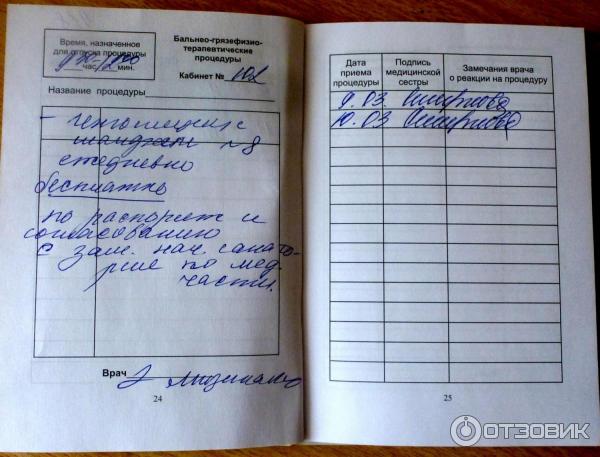 Время, назначенное
для отпуска процедуры
час. мин.
Бальнео-грязефизио-
терапевтические
процедуры
Кабинет № 102
Название процедуры
N8
ежедневно
бесплатно
по распоряж и
согласованию
с зам. нач. санато-
рие по мед.
части.
Врач
24
Дата
приема
процедуры
Подпись
медицинской
сестры
Замечания врача
о реакции на процедуру
9.03
10.03
25
ОТЗОВИК